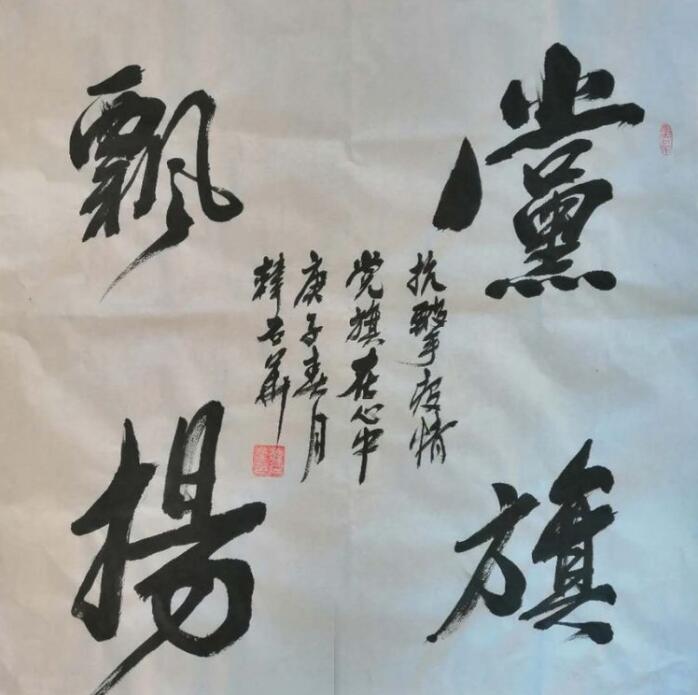 黨旗
飄揚
抗擊疫情
党旗在心中
庚子春月
韓華